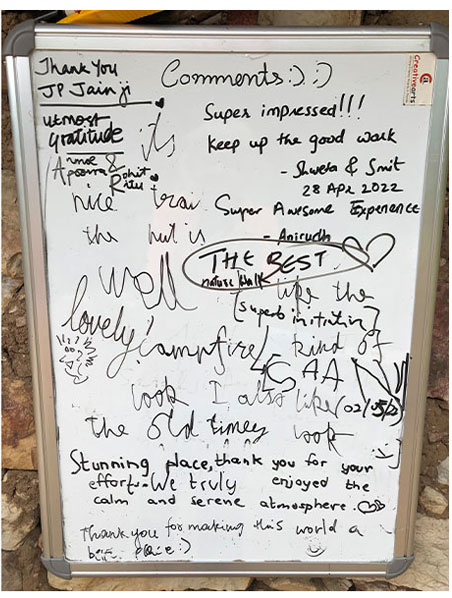 Comments :) :)
Thank You
JP Jain ji
utmost
gratitude
Apoorva &
Rohit
Creativearts
Super impressed!!!
Keep up the good work
- Shweta & Smit
28 Apr 2022
it's
nice
the hut is
well
like the
campfire kind of
look I also like
the old timey look
Super Awesome Experience
- Anirudh
THE BEST
nature walk
[superb initiative]
lovely!
ISAAN
Stunning place, thank you for your
effort. We truly enjoyed the
calm and serene atmosphere.
Thank you for making this world a
place :)